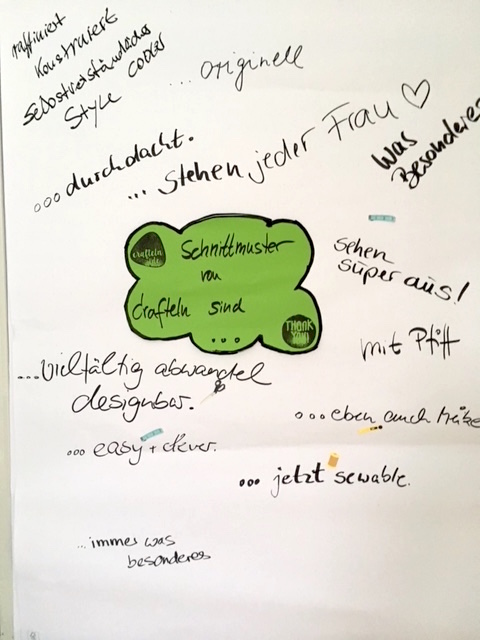 raffiniert
Konstruiert
Selbstverständliches
Style
cooles
... originell
ooo durchdacht.
... stehen jeder Frau ♡
Was
Besonderes
crafteln
style
Schnittmuster
von
Crafteln sind
...
THANK
YOU
sehen
super aus!
mit Pfiff
...vielfältig
designbar.
ooo eben auch
... easy + clever.
... jetzt sewable.
...immer was
besonderes